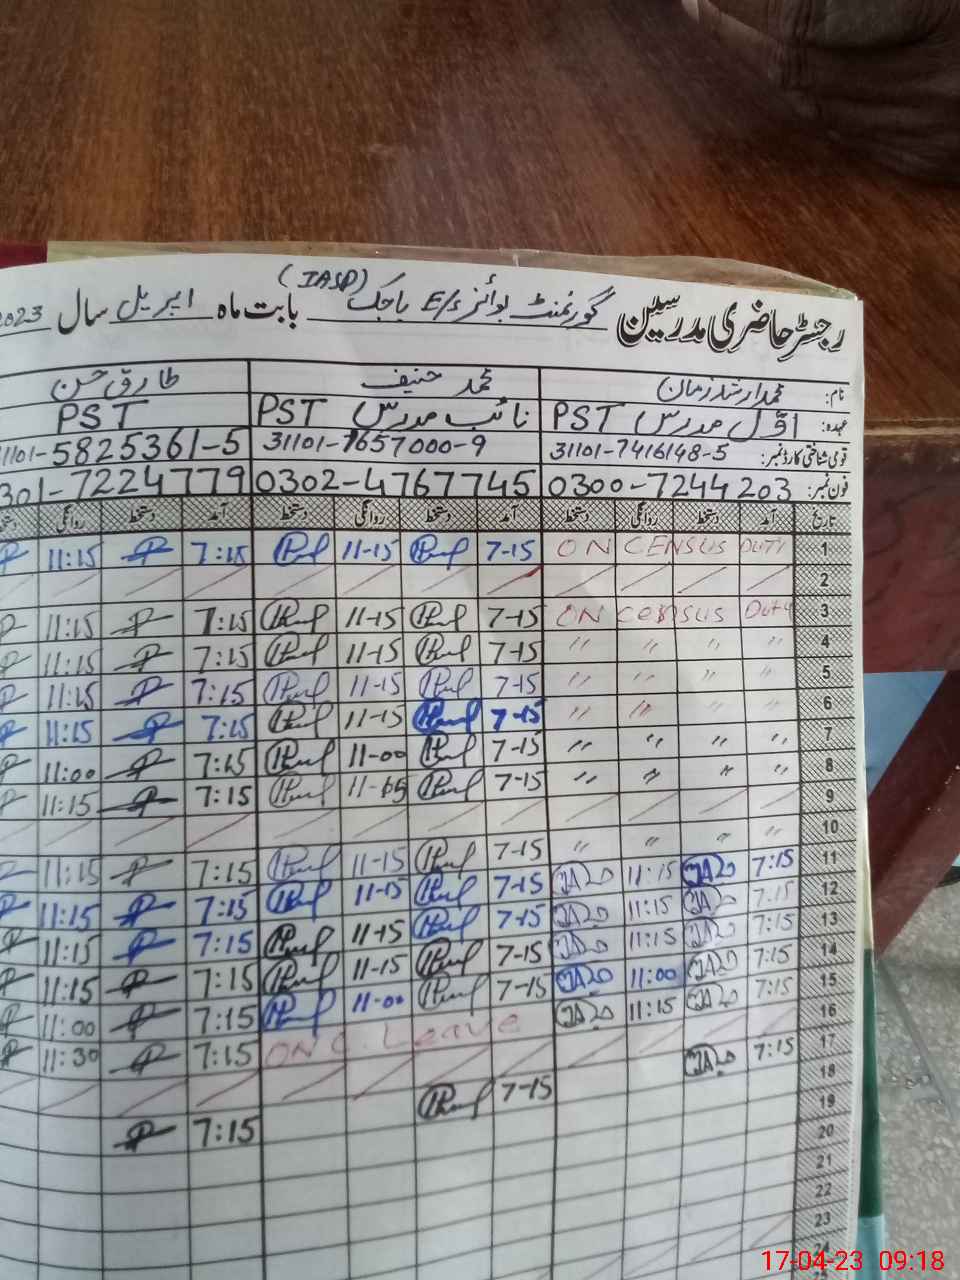 رجسٹر حاضری مدرسین گورنمنٹ بوائز E/S باجک (IASP) بابت ماہ اپریل سال 2023
نام: محمد ارشد زمان محمد حنیف طارق حسن
عہدہ: اوّل مدرس PST نائب مدرس PST PST
قومی شناختی کارڈ نمبر: 31101-7416148-5 31101-7657000-9 31101-5825361-5
فون نمبر: 0300-7244203 0302-4767745 301-7224779
تاریخ آمد دستخط روانگی دستخط آمد دستخط روانگی دستخط آمد دستخط روانگی دستخط
1 ON CENSUS DUTY 7-15 11-15 7:15 11:15
2
3 ON census Duty 7-15 11-15 7:15 11:15
4 " " " " 7-15 11-15 7:15 11:15
5 " " " " 7-15 11-15 7:15 11:15
6 " " " " 7-15 11-15 7:15 11:15
7 " " " " 7-15 11-00 7:15 11:00
8 " " " " 7-15 11-15 7:15 11:15
9
10 " " " " 7-15 11-15 7:15 11:15
11 7:15 11:15 7-15 11-15 7:15 11:15
12 7:15 11:15 7-15 11-15 7:15 11:15
13 7:15 11:15 7-15 11-15 7:15 11:15
14 7:15 11:00 7-15 11-00 7:15 11:00
15 7:15 11:15 ON C. Leave 7:15 11:30
16
17 7:15 7-15 7:15
18
19
20
21
22
23
24
17-04-23 09:18